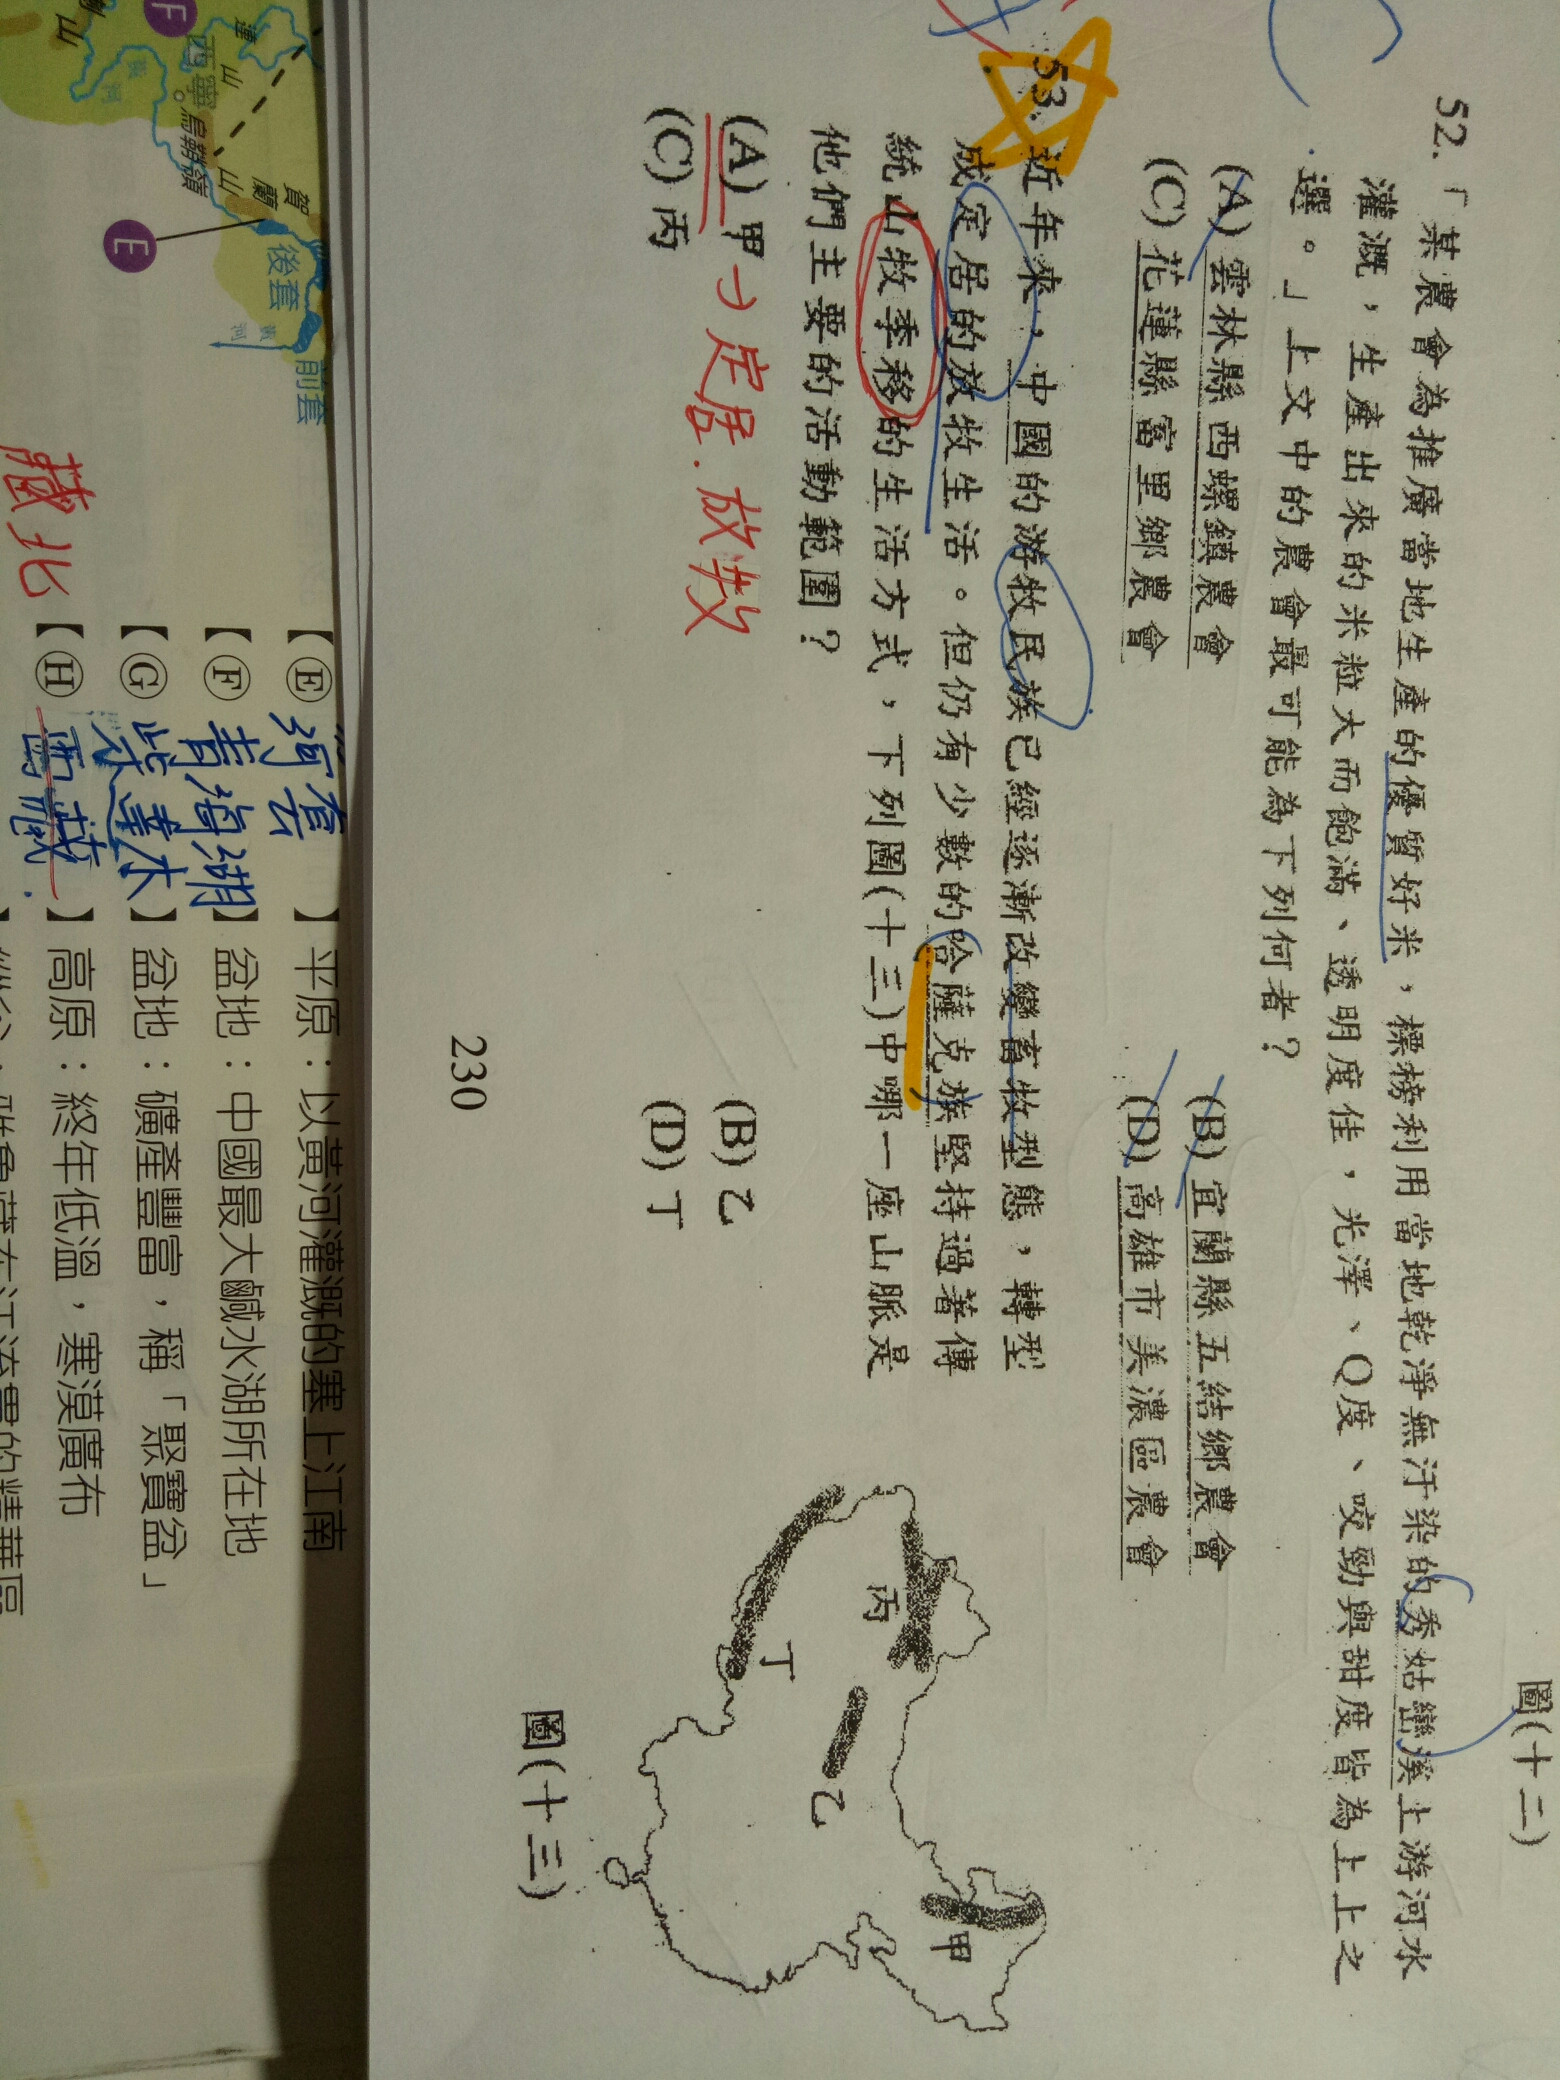 圖(十二)
52.「某農會為推廣當地生產的優質好米，標榜利用當地乾淨無汙染的秀姑巒溪上游河水
灌溉，生產出來的米粒大而飽滿、透明度佳，光澤、Q度、咬勁與甜度皆為上上之
選。」上文中的農會最可能為下列何者？
(A)雲林縣西螺鎮農會 (B)宜蘭縣五結鄉農會
(C)花蓮縣富里鄉農會 (D)高雄市美濃區農會
53.近年來，中國的游牧民族已經逐漸改變畜牧型態，轉型
成定居的放牧生活。但仍有少數的哈薩克族堅持過著傳
統山牧季移的生活方式，下列圖(十三)中哪一座山脈是
他們主要的活動範圍？
(A)甲→定居.放牧 (B)乙
(C)丙 (D)丁
甲
乙
丙
丁
圖(十三)
230
賀蘭山
後套
前套
黃河
E
F
西寧
烏鞘嶺
山
山
藏北
【Ⓔ河套】平原：以黃河灌溉的塞上江南
【Ⓕ青海湖】盆地：中國最大鹹水湖所在地
【Ⓖ柴達木】盆地：礦產豐富，稱「聚寶盆」
【Ⓗ西藏】高原：終年低溫，寒漠廣布